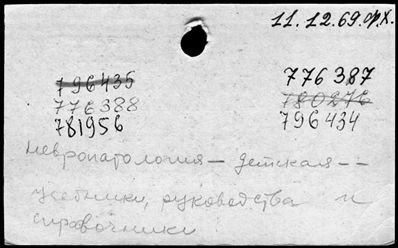 11.12.69.ф.х.
796435 776387
776388 780276
781956 796434
Невропатология – детская --
учебники, руководства и
справочники